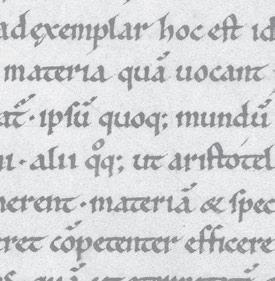 ad exemplar hoc est id
materia quā uocant
at̄· ipsū quoq; mundū
alii q̊q; ut aristotel
herent · materiā & spec
ret cōpetenter efficere